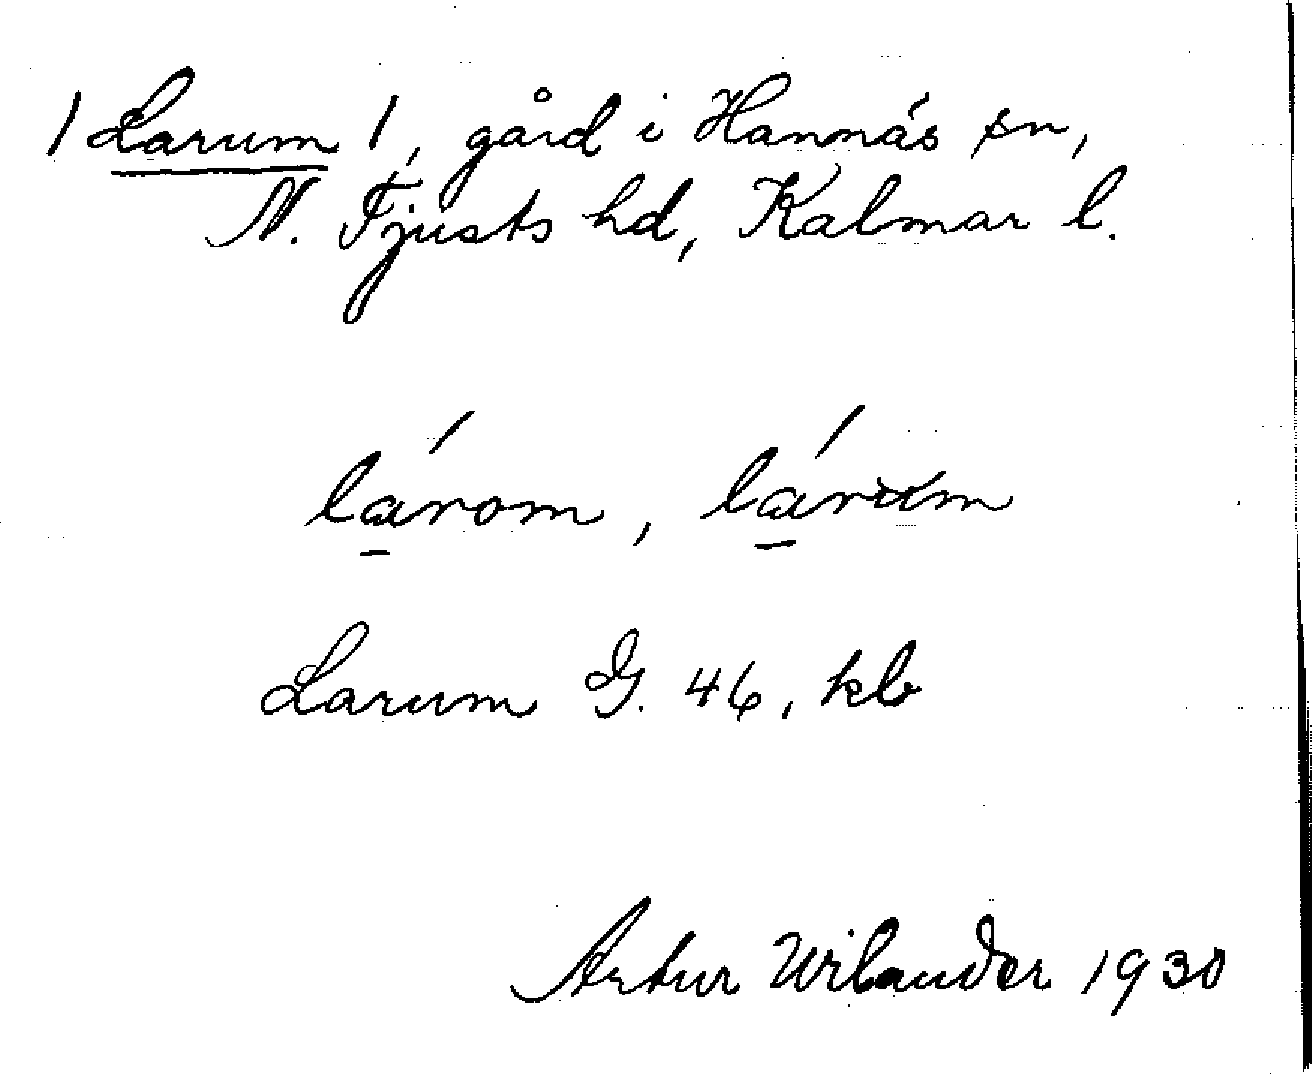 /Larum/, gård i Hannäs sn,
N. Tjusts hd, Kalmar l.
lárom, lárum
Larum G. 46, kb
Artur Wilander 1930